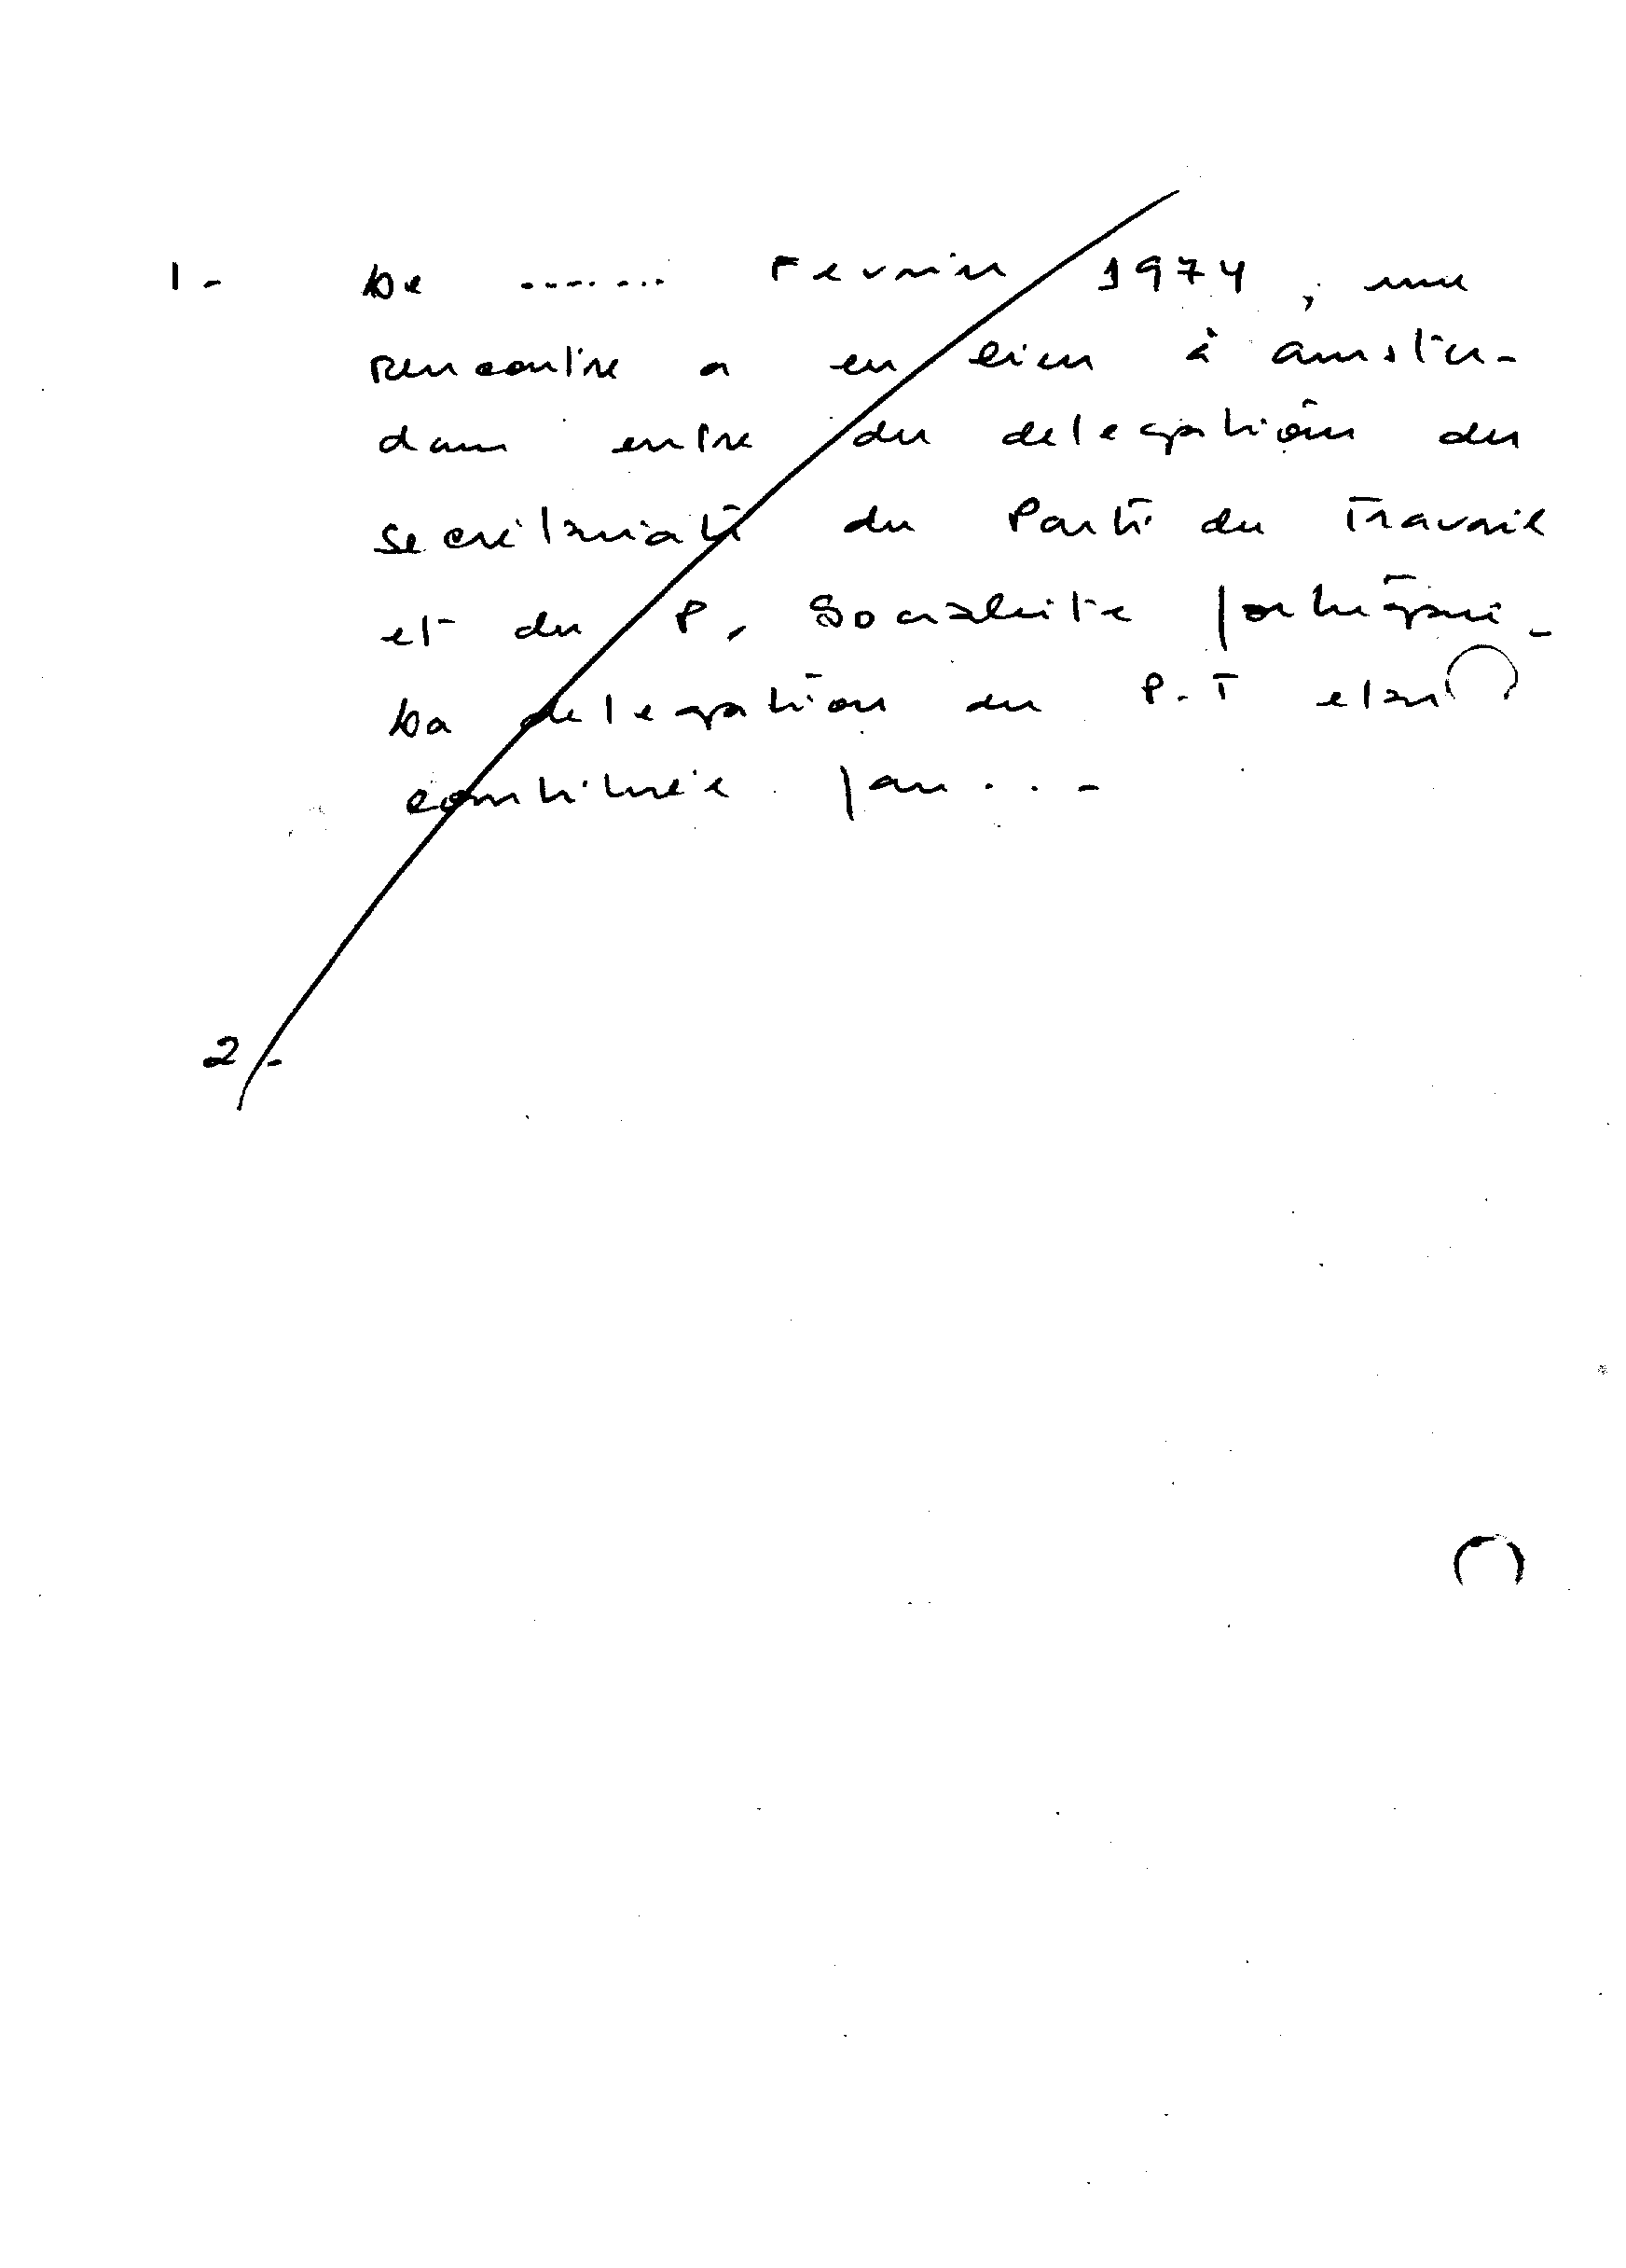 1 - Le ....... Fevrier 1974, une
rencontre a eu lieu à Amster-
dam entre des delegations des
secrétariats du Parti du Travail
et du P. Socialiste portugais -
La delegation du P.T etait
constituée par ...-
2 -